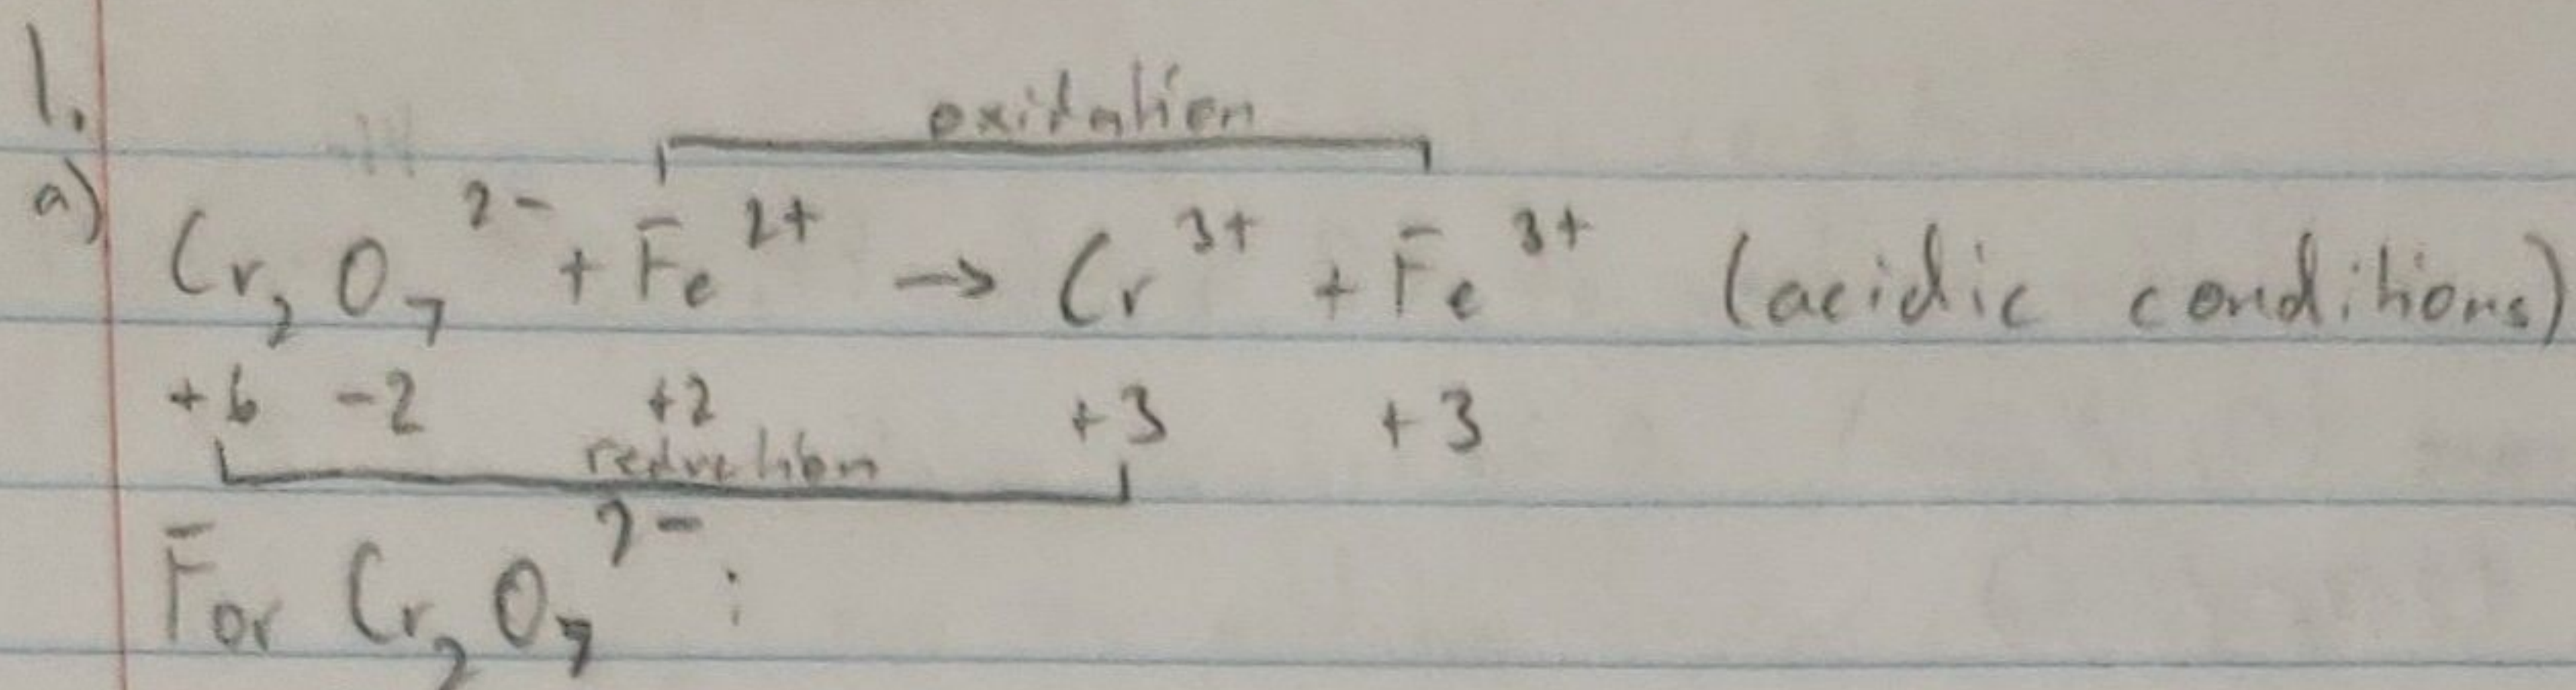 1.
oxidation
a) Cr₂O₇²⁻ + Fe²⁺ → Cr³⁺ + Fe³⁺ (acidic conditions)
+6 -2 +2 +3 +3
reduction
For Cr₂O₇²⁻: